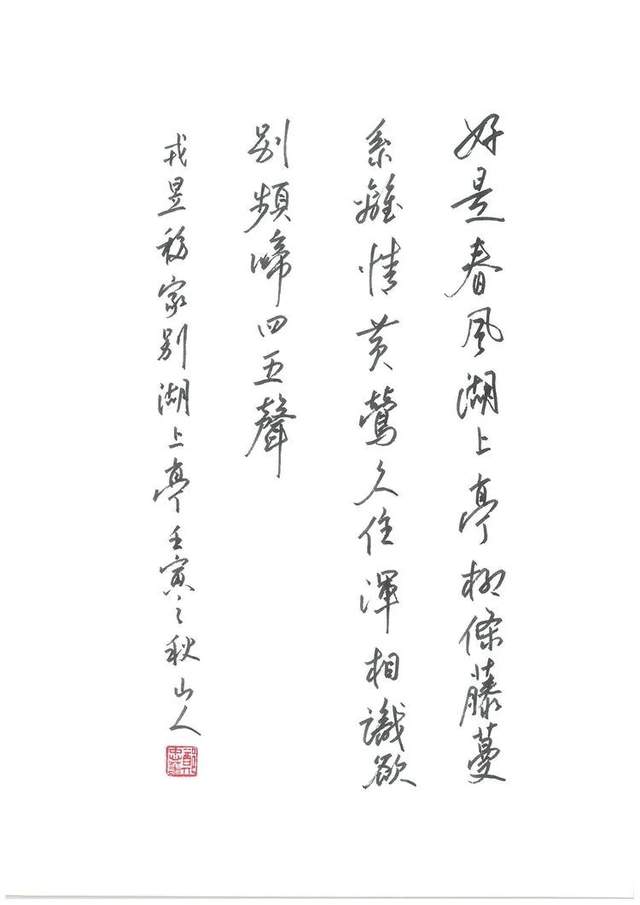 好是春風湖上亭柳條藤蔓
系離情黄鶯久住渾相識欲
別頻啼四五聲
戎昱移家別湖上亭壬寅之秋山人